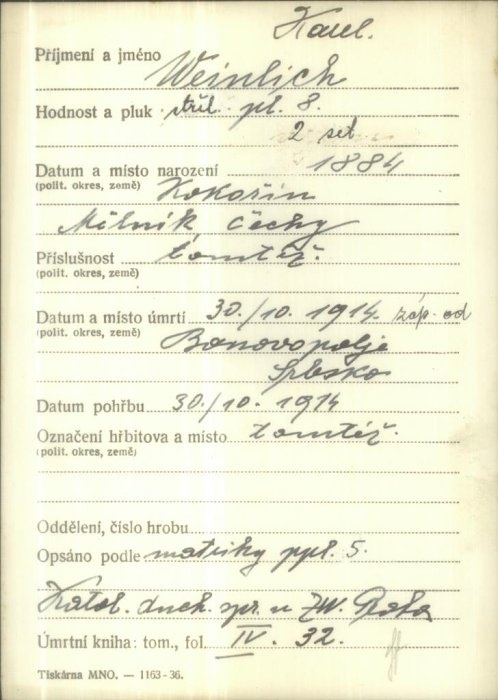 Karel.
Příjmení a jméno Weinlich
Hodnost a pluk střel. pl. 8.
2 set
Datum a místo narození 1884
(polit. okres, země) Kokořín
Mělník, Čechy
Příslušnost tomtéž.
(polit. okres, země)
Datum a místo úmrtí 30./10. 1914. záp. od
(polit. okres, země) Banovopolje
Srbsko
Datum pohřbu 30./10. 1914
Označení hřbitova a místo tomtéž.
(polit. okres, země)
Oddělení, číslo hrobu
Opsáno podle matriky ppl. 5.
Katol. duch. spr. u ZV. Praha
Úmrtní kniha: tom., fol. IV. 32.
Tiskárna MNO. — 1163-36.